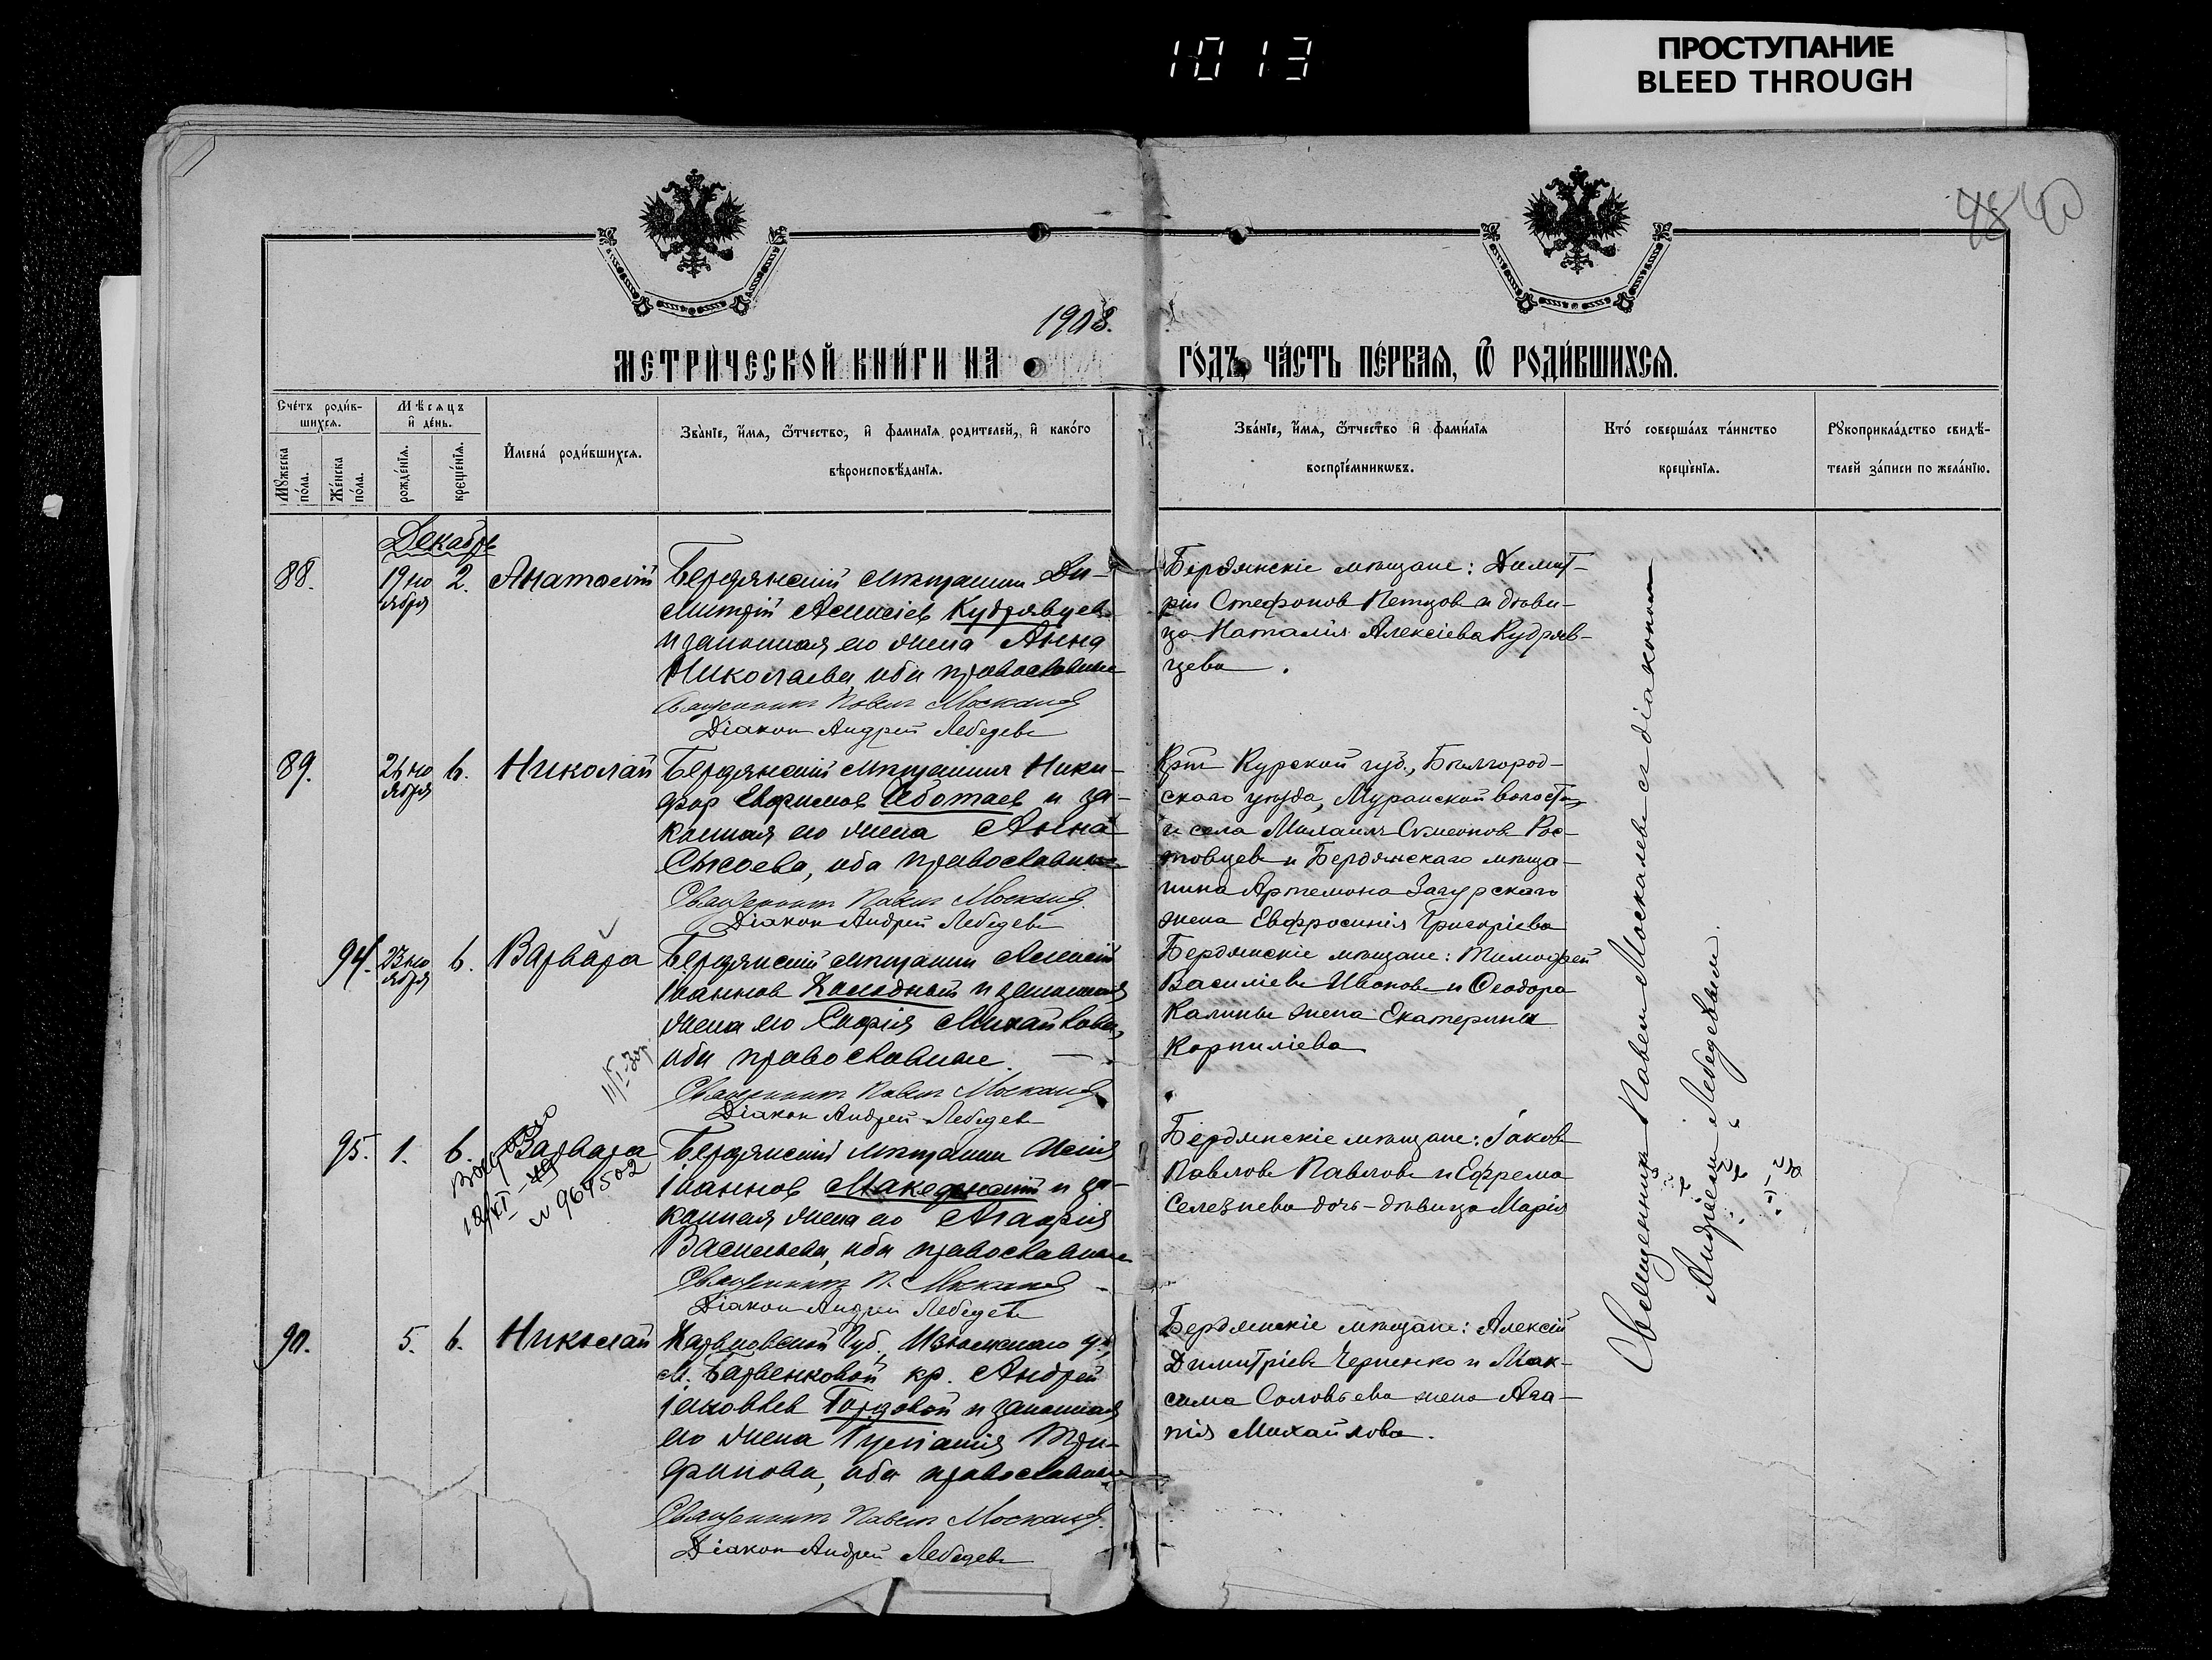 1013
ПРОСТУПАНИЕ
BLEED THROUGH
48
1908.
МЕТРИЧЕСКОЙ КНИГИ НА
ГОДЪ, ЧАСТЬ ПЕРВАЯ, Ѿ РОДИВШИХСЯ.
Счетъ родив-
шихся.
Мужеска пола.
Женска пола.
Мѣсяцъ и день.
рожденїя.
крещенїя.
Имена родившихся.
Званїе, имя, ѿчество, и фамилїя родителей, и какого
вѣроисповѣданїя.
Званїе, имя, ѿчество и фамилїя
воспрїемниковъ.
Кто совершалъ таинство
крещенїя.
Рукоприкладство свидѣ-
телей записи по желанїю.
Декабрь
88. 19 но
ября 2. Анатолій
Бердянскій мѣщанинъ Ди-
митрій Алексіевъ Кудрявцевъ
и законная его жена Анна
Николаева, оба православные
Священникъ Павелъ Москалевъ
Діаконъ Андрей Лебедевъ
Бердянскіе мѣщане: Димит-
рій Стефановъ Петцовъ и дѣви-
ца Наталія Алексіева Кудряв-
цева.
89. 26 но
ября 6. Николай
Бердянскій мѣщанинъ Ники-
форъ Евфимовъ Чеботаевъ и за-
конная его жена Анна
Сысоева, оба православные
Священникъ Павелъ Москалевъ
Діаконъ Андрей Лебедевъ
Крт. Курской губ., Бѣлгород-
скаго уѣзда, Муромской волости,
и села Михаилъ Симеоновъ Рос-
товцевъ и Бердянскаго мѣща-
нина Артемона Загурскаго
жена Евфросинія Григоріева
94. 23 но
ября 6. Варвара
Бердянскій мѣщанинъ Алексій
Іоанновъ Холодный и законная
жена его Софія Михайлова,
оба православные.
Священникъ Павелъ Москалевъ
Діаконъ Андрей Лебедевъ
Бердянскіе мѣщане: Тимофей
Василіевъ Ивановъ и Ѳеодора
Калины жена Екатерина
Корниліева
95. 1. 6. Варвара
№ 964502
Бердянскій мѣщанинъ Исаія
Іоанновъ Македонскій и за-
конная жена его Агафія
Васильева, оба православные
Священникъ П. Москалевъ
Діаконъ Андрей Лебедевъ
Бердянскіе мѣщане: Іаковъ
Павловъ Павловъ и Ефрема
Селезнева дочь-дѣвица Марія
90. 5. 6. Николай
Харьковской Губ., Изюмскаго у.,
м. Барвенковой кр. Андрей
Іаковлевъ Торговой и законная
его жена Гликерія Три-
фонова, оба православные
Священникъ Павелъ Москалевъ
Діаконъ Андрей Лебедевъ
Бердянскіе мѣщане: Алексій
Димитріевъ Черненко и Мак-
сима Соловьева жена Ага-
пія Михайлова.
Священникъ Павелъ Москалевъ съ діакономъ
Андреемъ Лебедевымъ.